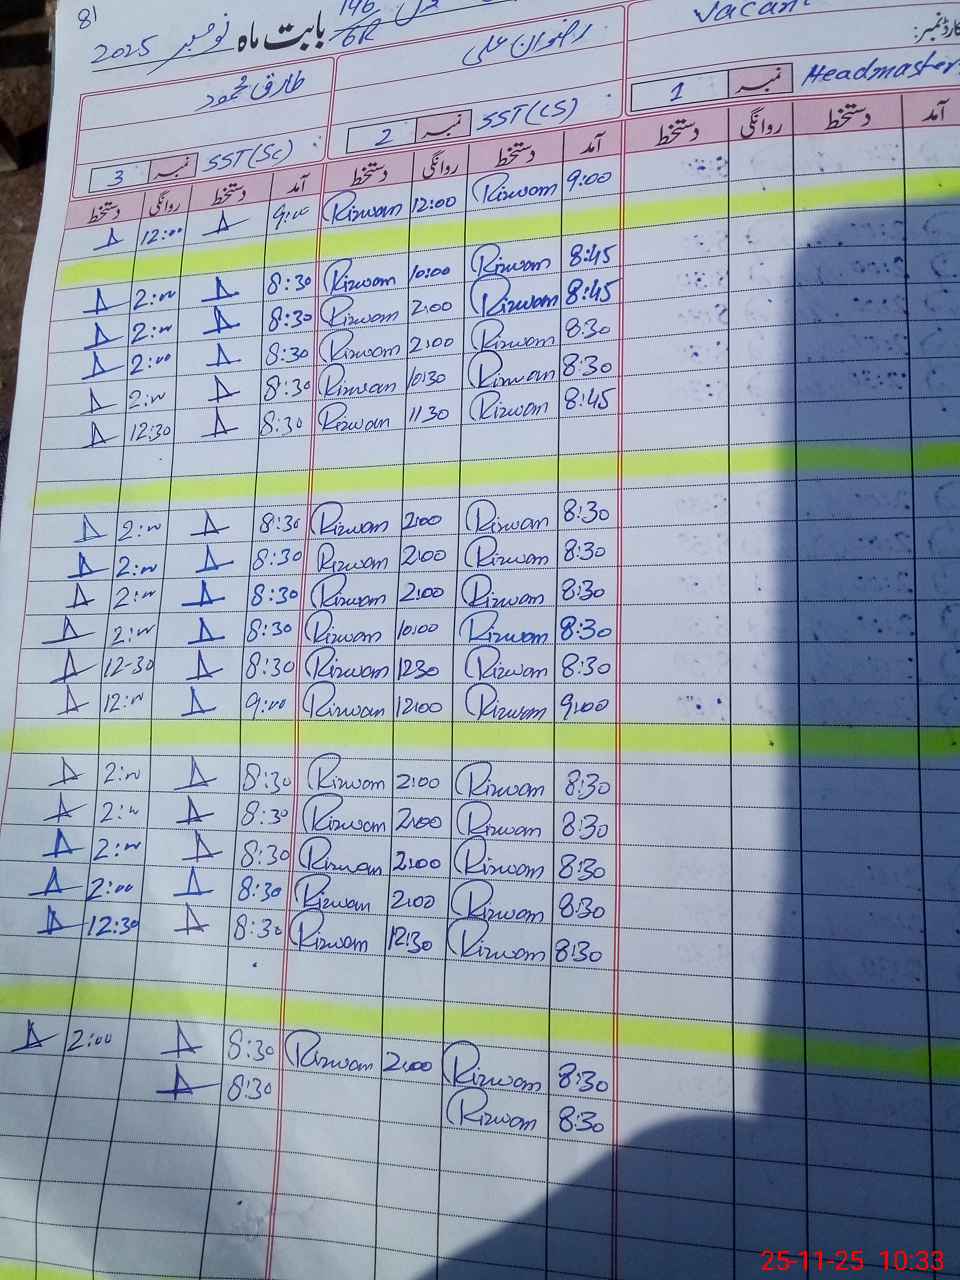 81
بابت ماہ نومبر 2025
146/GR
Vacant
کارڈ نمبر:
Headmaster نمبر 1
رضوان علی
SST(CS) نمبر 2
طارق محمود
SST(Sc) نمبر 3
آمد دستخط روانگی دستخط آمد دستخط روانگی دستخط آمد دستخط روانگی دستخط
9:00 Rizwan 12:00 Rizwan 9:00 12:00
8:45 Rizwan 10:00 Rizwan 8:30 2:00
8:45 Rizwan 2:00 Rizwan 8:30 2:00
8:30 Rizwan 2:00 Rizwan 8:30 2:00
8:30 Rizwan 10:30 Rizwan 8:30 2:00
8:45 Rizwan 11:30 Rizwan 8:30 12:30
8:30 Rizwan 2:00 Rizwan 8:30 2:00
8:30 Rizwan 2:00 Rizwan 8:30 2:00
8:30 Rizwan 2:00 Rizwan 8:30 2:00
8:30 Rizwan 10:00 Rizwan 8:30 2:00
8:30 Rizwan 12:30 Rizwan 8:30 12-30
9:00 Rizwan 12:00 Rizwan 9:00 12:00
8:30 Rizwan 2:00 Rizwan 8:30 2:00
8:30 Rizwan 2:00 Rizwan 8:30 2:00
8:30 Rizwan 2:00 Rizwan 8:30 2:00
8:30 Rizwan 2:00 Rizwan 8:30 2:00
8:30 Rizwan 12:30 Rizwan 8:30 12:30
8:30 Rizwan 2:00 Rizwan 8:30 2:00
8:30 Rizwan 8:30
25-11-25 10:33